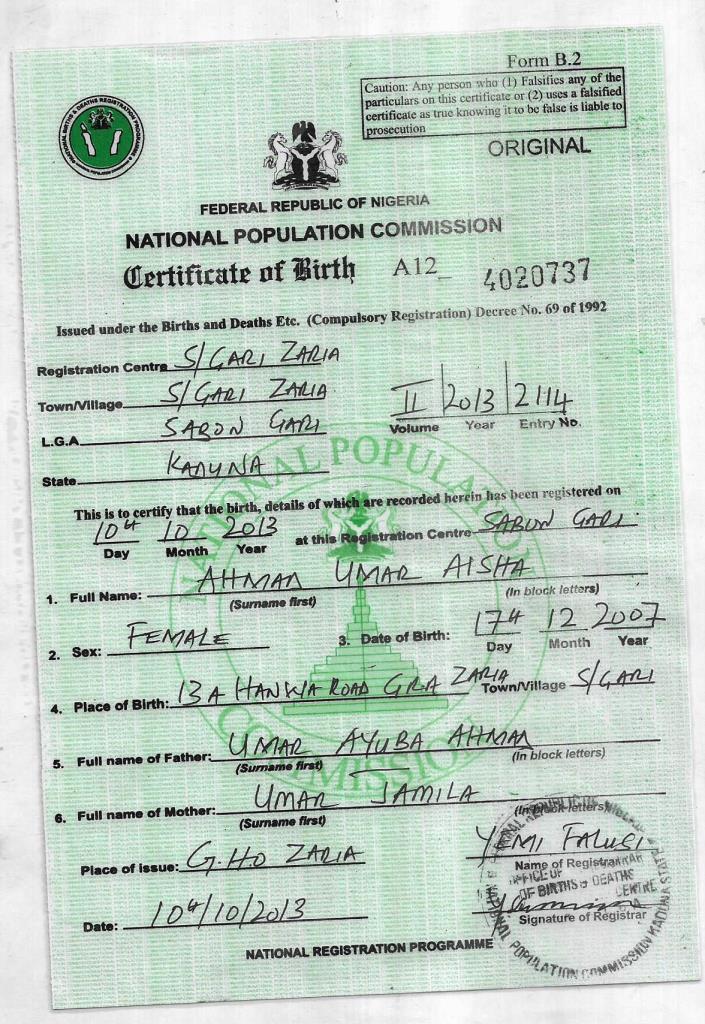 Form B.2
Caution: Any person who (1) Falsifies any of the
particulars on this certificate or (2) uses a falsified
certificate as true knowing it to be false is liable to
prosecution
ORIGINAL
FEDERAL REPUBLIC OF NIGERIA
NATIONAL POPULATION COMMISSION
Certificate of Birth A12_ 4020737
Issued under the Births and Deaths Etc. (Compulsory Registration) Decree No. 69 of 1992
Registration Centre S/GARI ZARIA
Town/Village S/GARI ZARIA
L.G.A SABON GARI
II 2013 2114
Volume Year Entry No.
State KADUNA
NATIONAL POPULATION COMMISSION
This is to certify that the birth, details of which are recorded herein has been registered on
10th 10 2013 at this Registration Centre SABON GARI
Day Month Year
1. Full Name: AHMAD UMAR AISHA
(Surname first) (In block letters)
2. Sex: FEMALE 3. Date of Birth: 17th 12 2007
Day Month Year
4. Place of Birth: 13A HANWA ROAD GRA ZARIA Town/Village S/GARI
5. Full name of Father: UMAR AYUBA AHMAD
(Surname first) (In block letters)
6. Full name of Mother: UMAR JAMILA
(Surname first) (In block letters)
Place of issue: G.H.O ZARIA YEMI FALUSI
Name of Registrar
Date: 10th/10/2013
Signature of Registrar
NATIONAL REGISTRATION PROGRAMME
OFFICE OF
OF BIRTHS & DEATHS
CENTRE
NATIONAL POPULATION COMMISSION KADUNA STATE